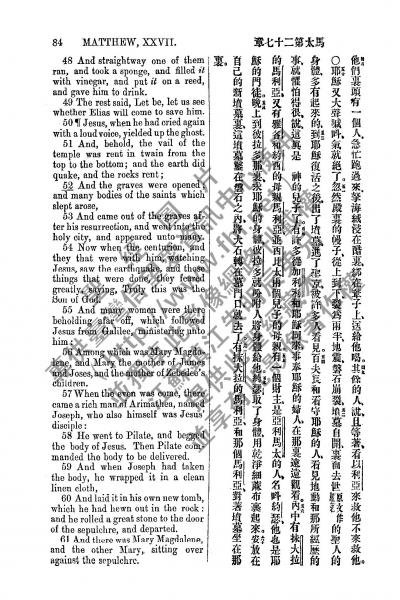 84 MATTHEW, XXVII.
48 And straightway one of them
ran, and took a sponge, and filled it
with vinegar, and put it on a reed,
and gave him to drink.
49 The rest said, Let be, let us see
whether Elias will come to save him.
50 ¶ Jesus, when he had cried again
with a loud voice, yielded up the ghost.
51 And, behold, the vail of the
temple was rent in twain from the
top to the bottom; and the earth did
quake, and the rocks rent;
52 And the graves were opened;
and many bodies of the saints which
slept arose,
53 And came out of the graves af-
ter his resurrection, and went into the
holy city, and appeared unto many.
54 Now when the centurion, and
they that were with him, watching
Jesus, saw the earthquake, and those
things that were done, they feared
greatly, saying, Truly this was the
Son of God.
55 And many women were there
beholding afar off, which followed
Jesus from Galilee, ministering unto
him:
56 Among which was Mary Magda-
lene, and Mary the mother of James
and Joses, and the mother of Zebedee's
children.
57 When the even was come, there
came a rich man of Arimathea, named
Joseph, who also himself was Jesus'
disciple:
58 He went to Pilate, and begged
the body of Jesus. Then Pilate com-
manded the body to be delivered.
59 And when Joseph had taken
the body, he wrapped it in a clean
linen cloth,
60 And laid it in his own new tomb,
which he had hewn out in the rock:
and he rolled a great stone to the door
of the sepulchre, and departed.
61 And there was Mary Magdalene,
and the other Mary, sitting over
against the sepulchre.
馬太第二十七章
他們裏頭有一個人、急忙跑過來、拏海絨浸在醋裏、綁在葦子上、送給他喝、其餘的人說、且等著、看以利亞來救他不來救他
〇耶穌又大聲喊呌、氣就絕了、忽然殿裏的幔子、從上到下、裂為兩半、地震、磐石崩裂、墳墓自開、裏面去世原文作睡的聖人的
身體、多有起來的、到耶穌復活之後、出了墳墓、進了聖京、被許多人看見、百夫長和看守耶穌的人、看見地動、和那所經歷的
事、就懼怕得很、說、這眞是 神的兒子了、有許多從加利利和耶穌來、事奉耶穌的婦人、在那裏遠遠觀看、內中有抹大拉
的馬利亞、又有雅各和約西的母親馬利亞、並西比太兩個兒子的母親、有一個財主、是亞利馬太的人、名呌約瑟、他也是耶
穌的門徒、晚上到彼拉多那裏、求耶穌的身體、彼拉多就吩咐人、將身體給他、約瑟取了身體、用乾淨細蔴布裹起來、安放在
自己的新墳墓裏、這墳墓鑿在磐石之內、將大石轉在墳墓門口、就去了、有抹大拉的馬利亞、和那個馬利亞、對著墳墓坐在那
裏。